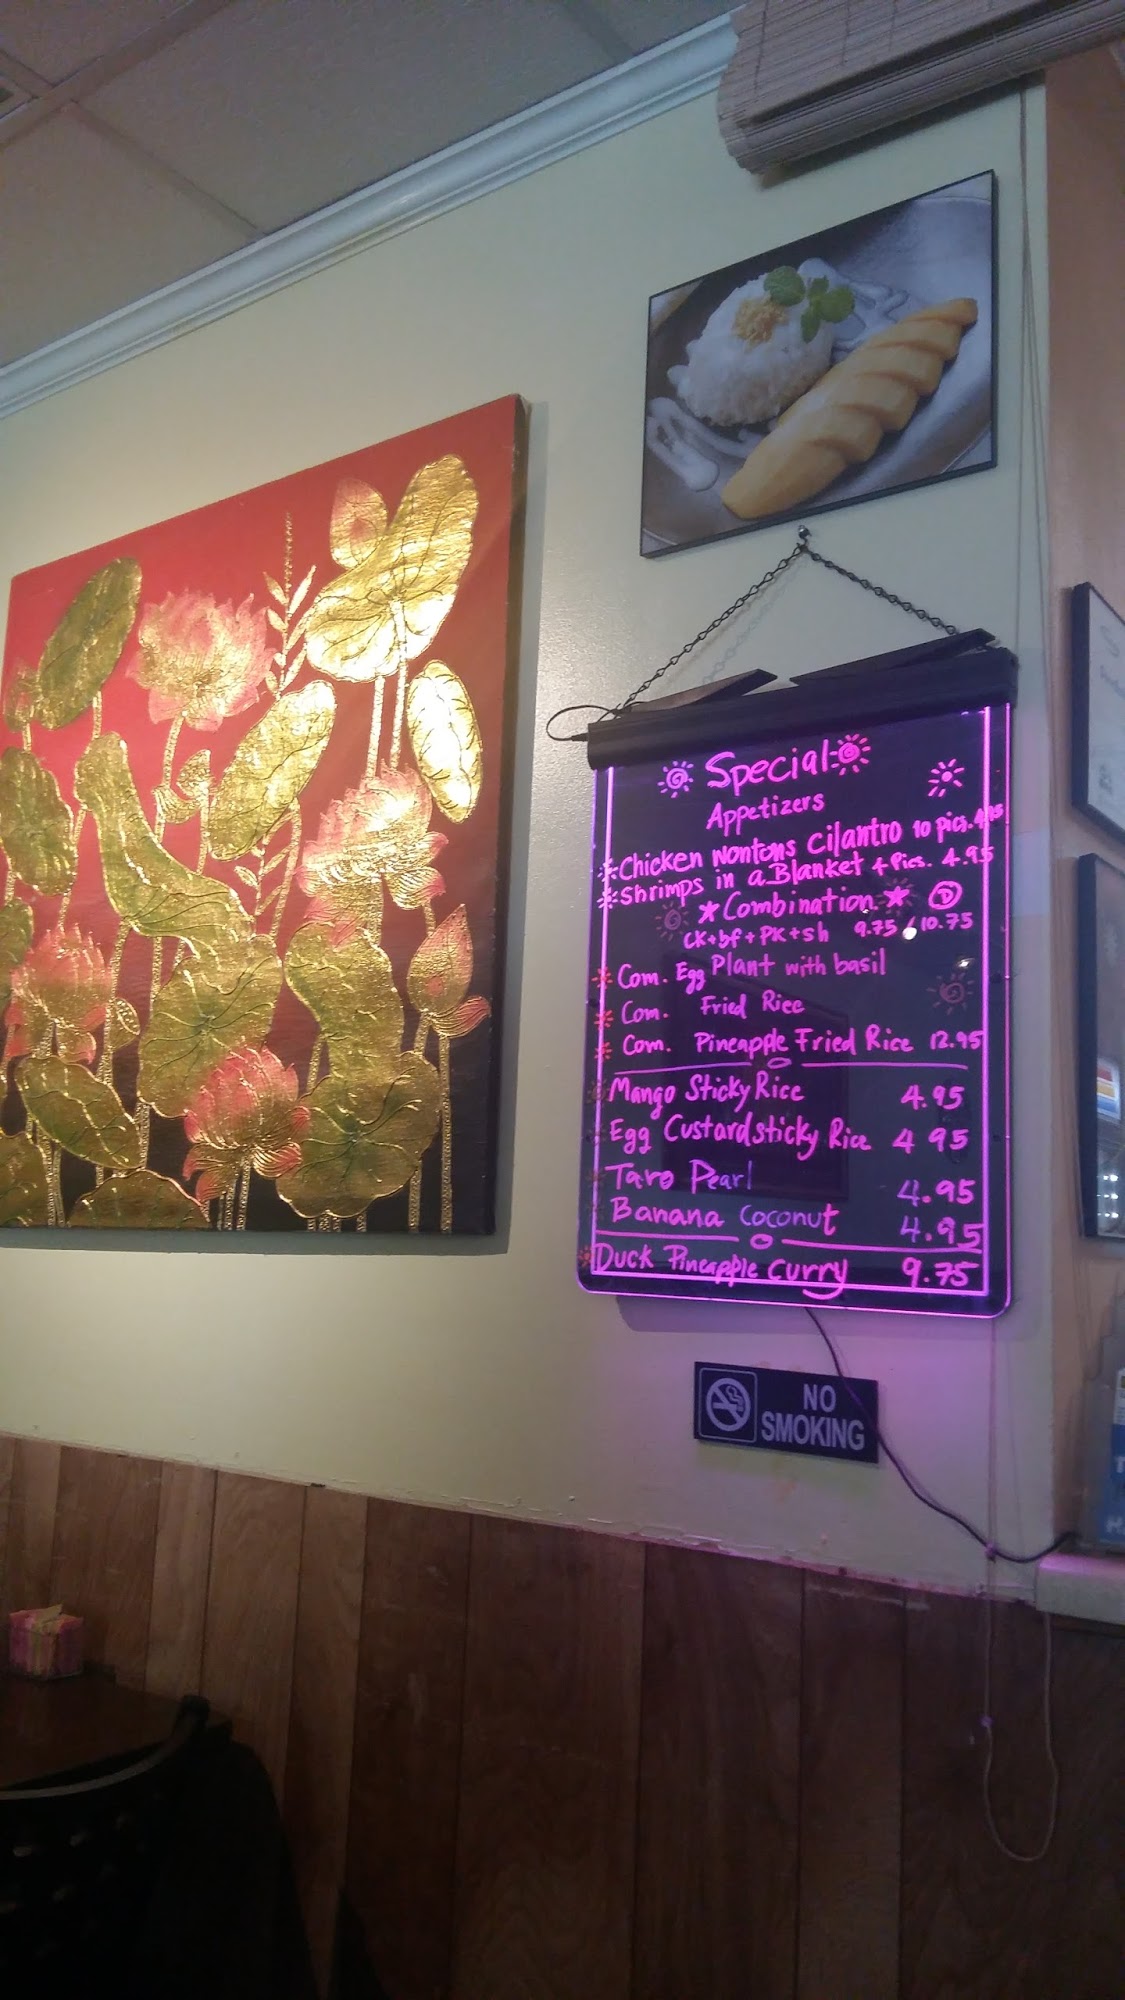 Special
Appetizers
Chicken wontons cilantro 10 pics. 4.95
Shrimps in a Blanket 4 Pics. 4.95
Combination D
CK+bf+PK+sh 9.75 / 10.75
Com. Egg Plant with basil
Com. Fried Rice
Com. Pineapple Fried Rice 12.95
Mango Sticky Rice 4.95
Egg Custard sticky Rice 4.95
Taro Pearl 4.95
Banana Coconut 4.95
Duck Pineapple curry 9.75
NO
SMOKING